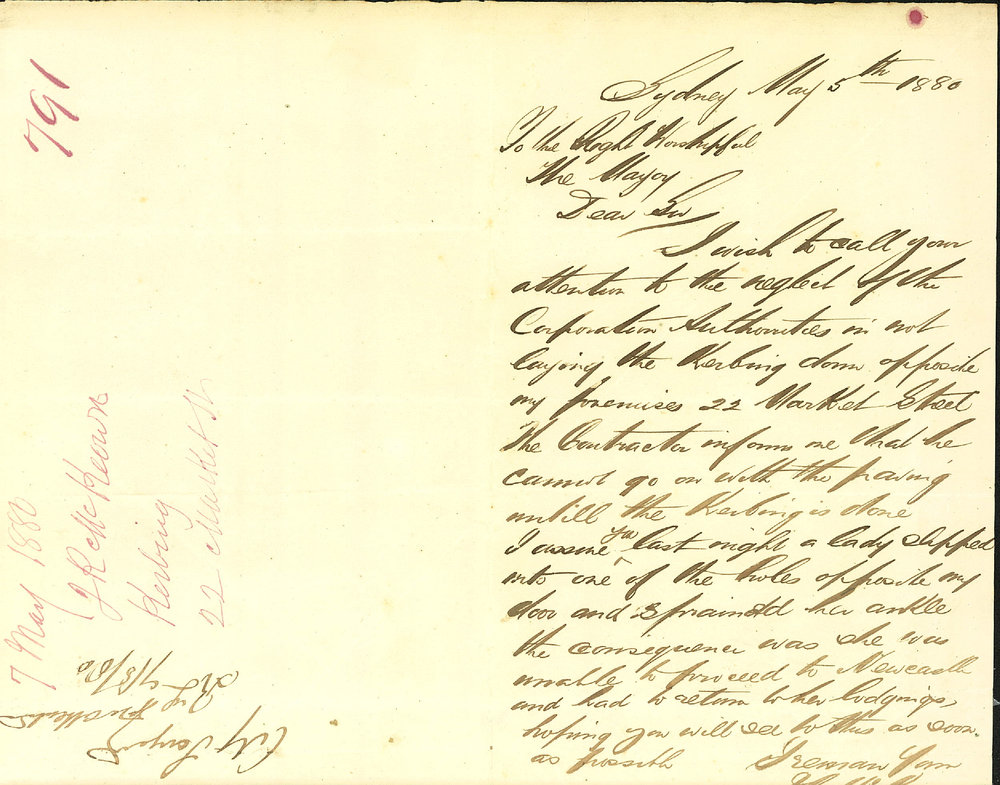 Sydney May 5th 1880
To the Right Worshipful
The Mayor
Dear Sir
I wish to call your
attention to the neglect of the
Corporation Authorities in not
laying the Kerbing down opposite
my premises 22 Market Street
The Contractor informs me that he
cannot go on with the paving
untill the Kerbing is done
I assure you last night a lady slipped
into one of the holes opposite my
door and spraindd her ankle
the consequence was she was
unable to proceed to Newcastle
and had to return to her lodgings,
hoping you will see to this as soon
as possible I remain Your
791
7 May 1880
J R McKeown
Kerbing
22 Market St
City Surveyor
7/5/80